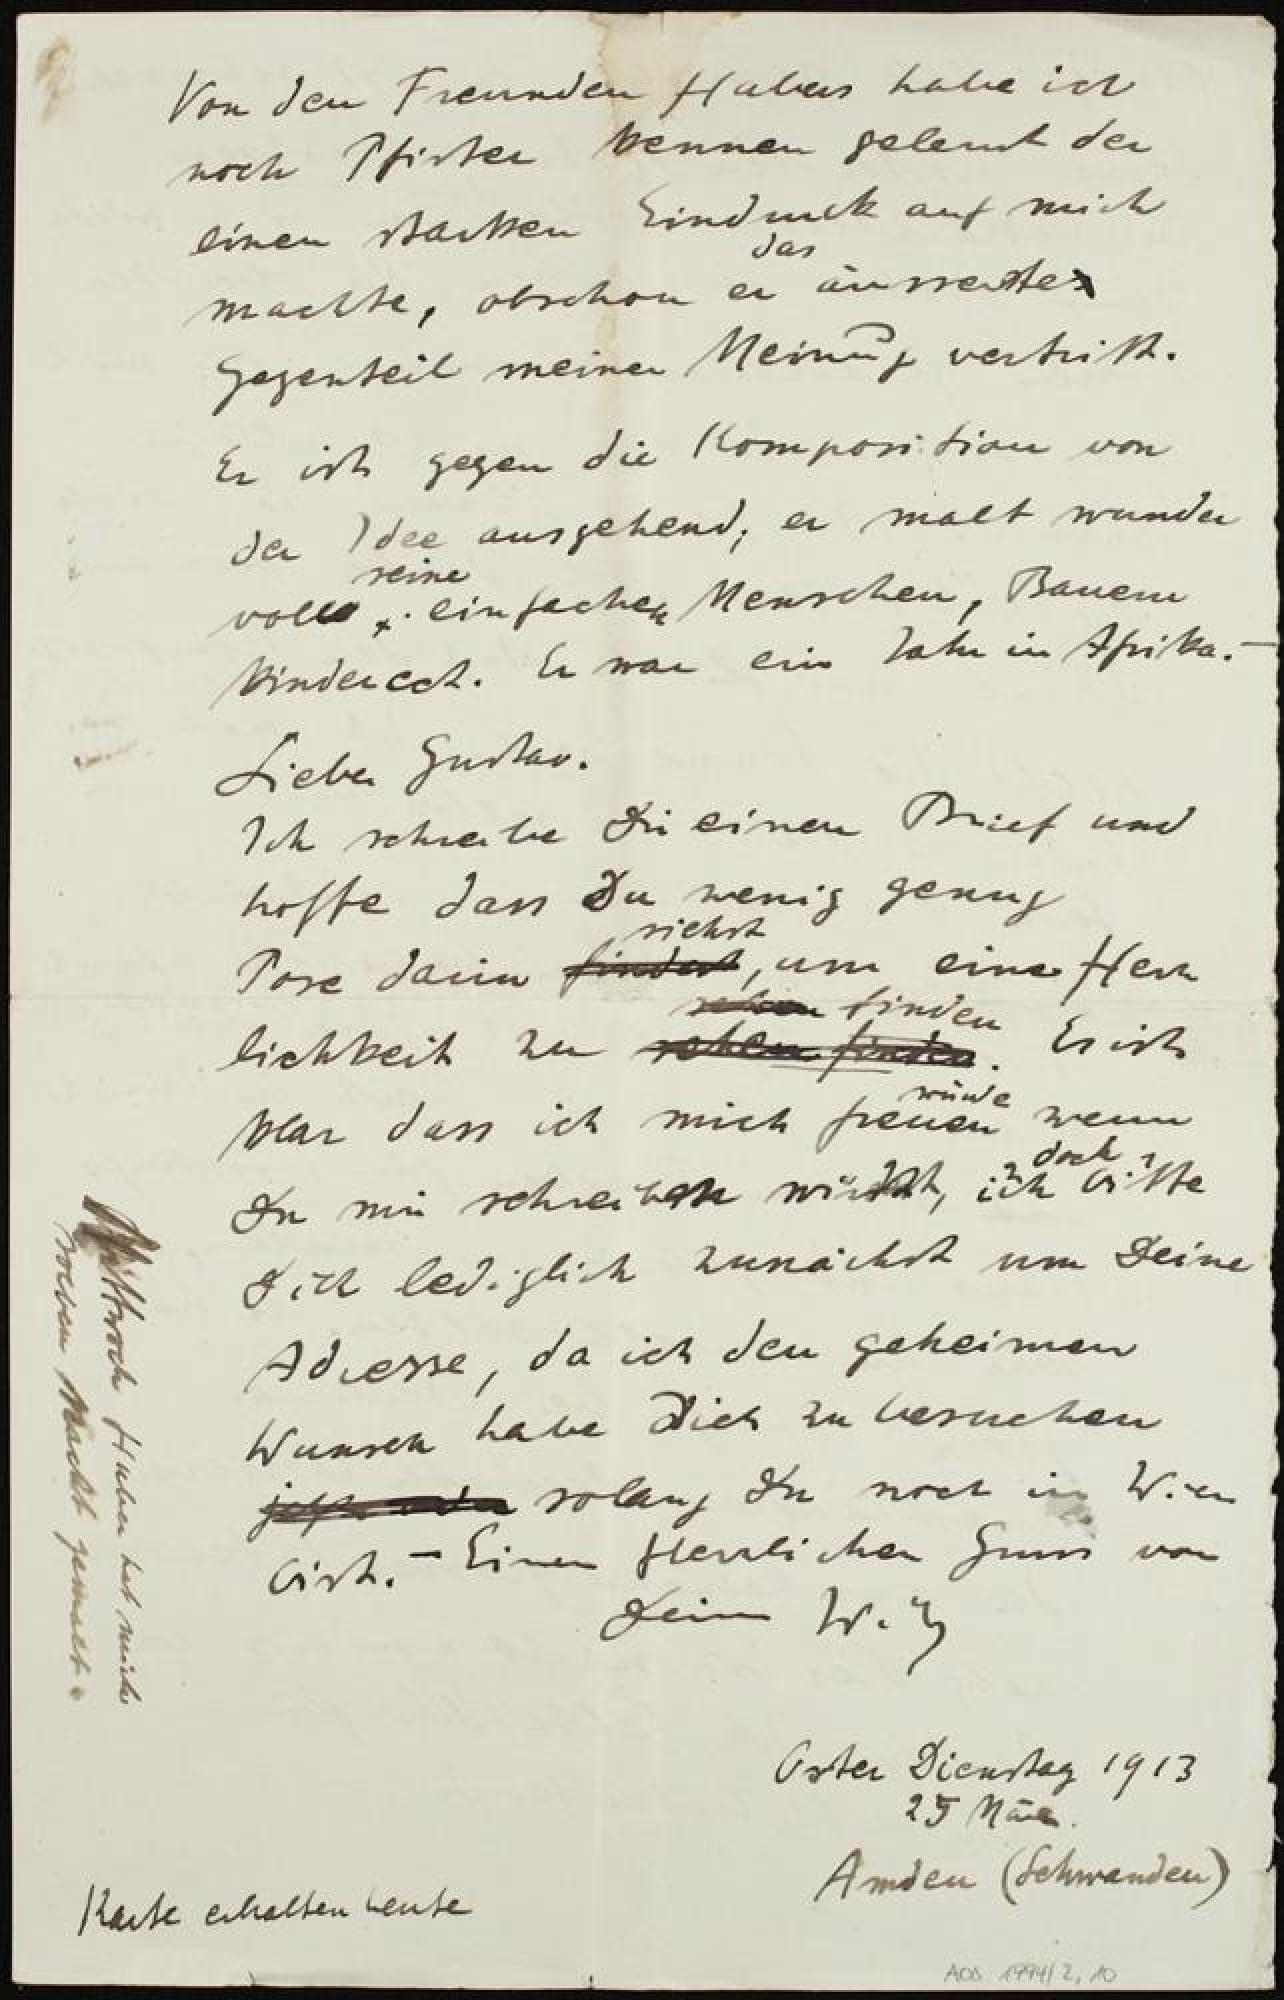 Von den Freunden Hubers habe ich
noch Pfister kennen gelernt der
einen starken Eindruck auf mich
das
machte, obschon er äusserste
Gegenteil meiner Meinung vertritt.
Er ist gegen die Komposition von
der Idee ausgehend, er malt wunder
seine
voll einfachen Menschen, Bauern
Kinder ect. Er war ein Jahr in Afrika. –
Lieber Gustav.
Ich schreibe Dir einen Brief und
hoffe dass Du wenig genug
siehst
Pose darin findest, um eine Herz
sehen finden
lichkeit zu sehen finden. Es ist
würde
klar dass ich mich freuen wenn
doch
Du mir schreiben würdest, ich bitte
Dich lediglich zunächst um Deine
Adresse, da ich den geheimen
Wunsch habe Dich zu besuchen
solang Du noch in Wien
bist. – Einen Herzlichen Gruss von
Deinem W.
Oster Dienstag 1913
25 März.
Amden (Schwanden)
Karte erhalten heute
Mittwoch Huber hat mich
soeben Nackt gemalt.
AOD 1994/2, 10